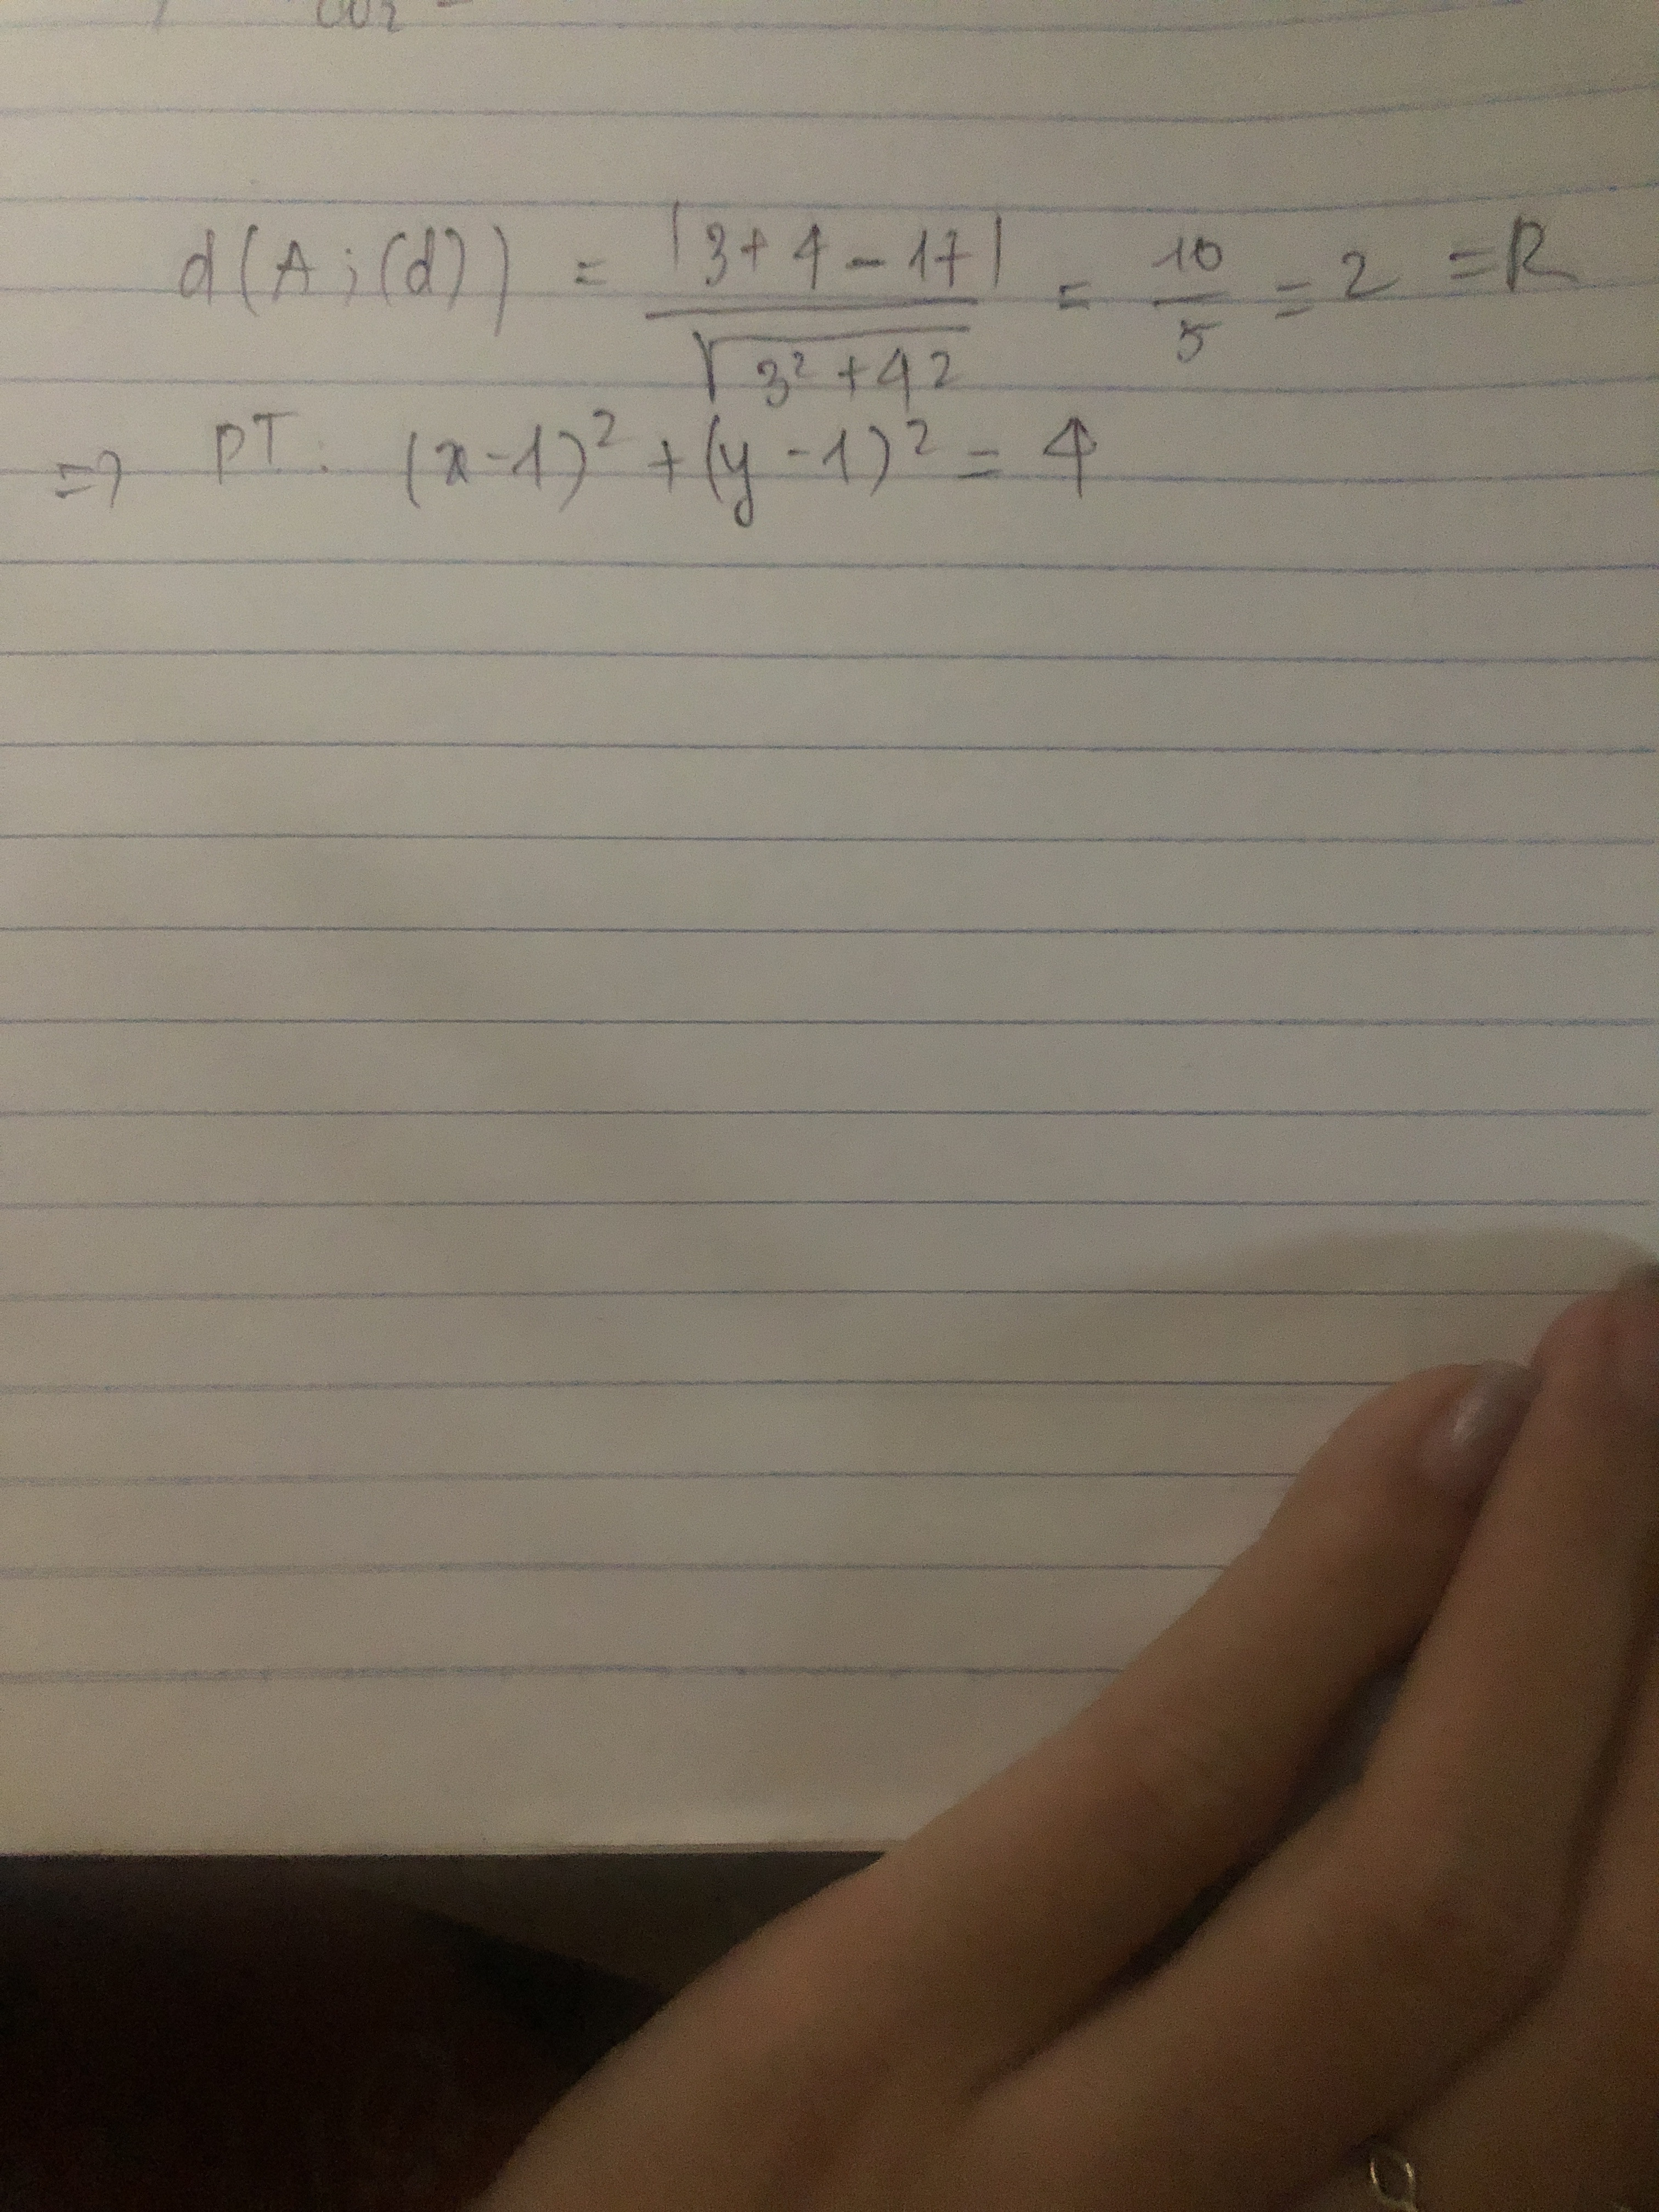 d(A;(d)) = |3+4-17| / √(3²+4²) = 10/5 = 2 = R
=> PT: (x-1)² + (y-1)² = 4